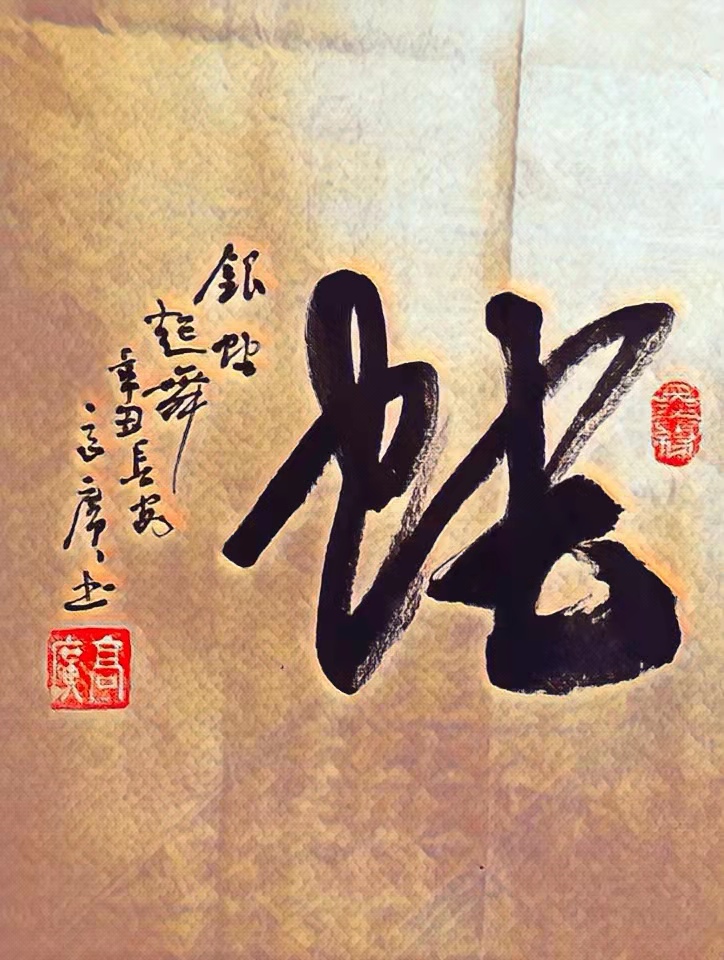 蛇
銀蛇
起舞
辛丑長安
高廣書
高廣